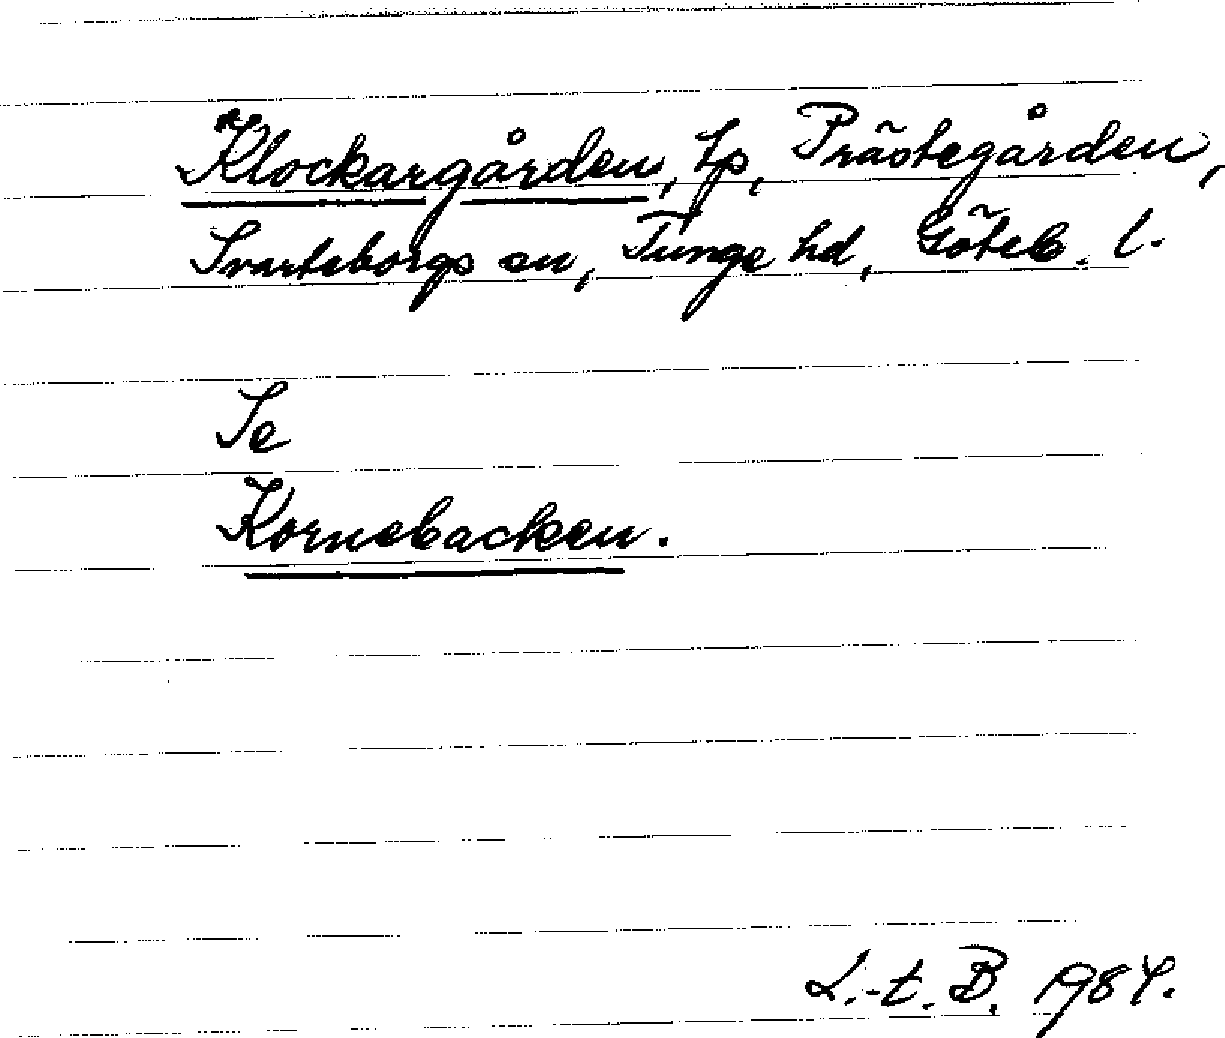 Klockargården, tp, Prästegården,
Svarteborgs sn, Tunge hd, Göteb. l.
Se
Kornebacken.
L.-t. B. 1984.